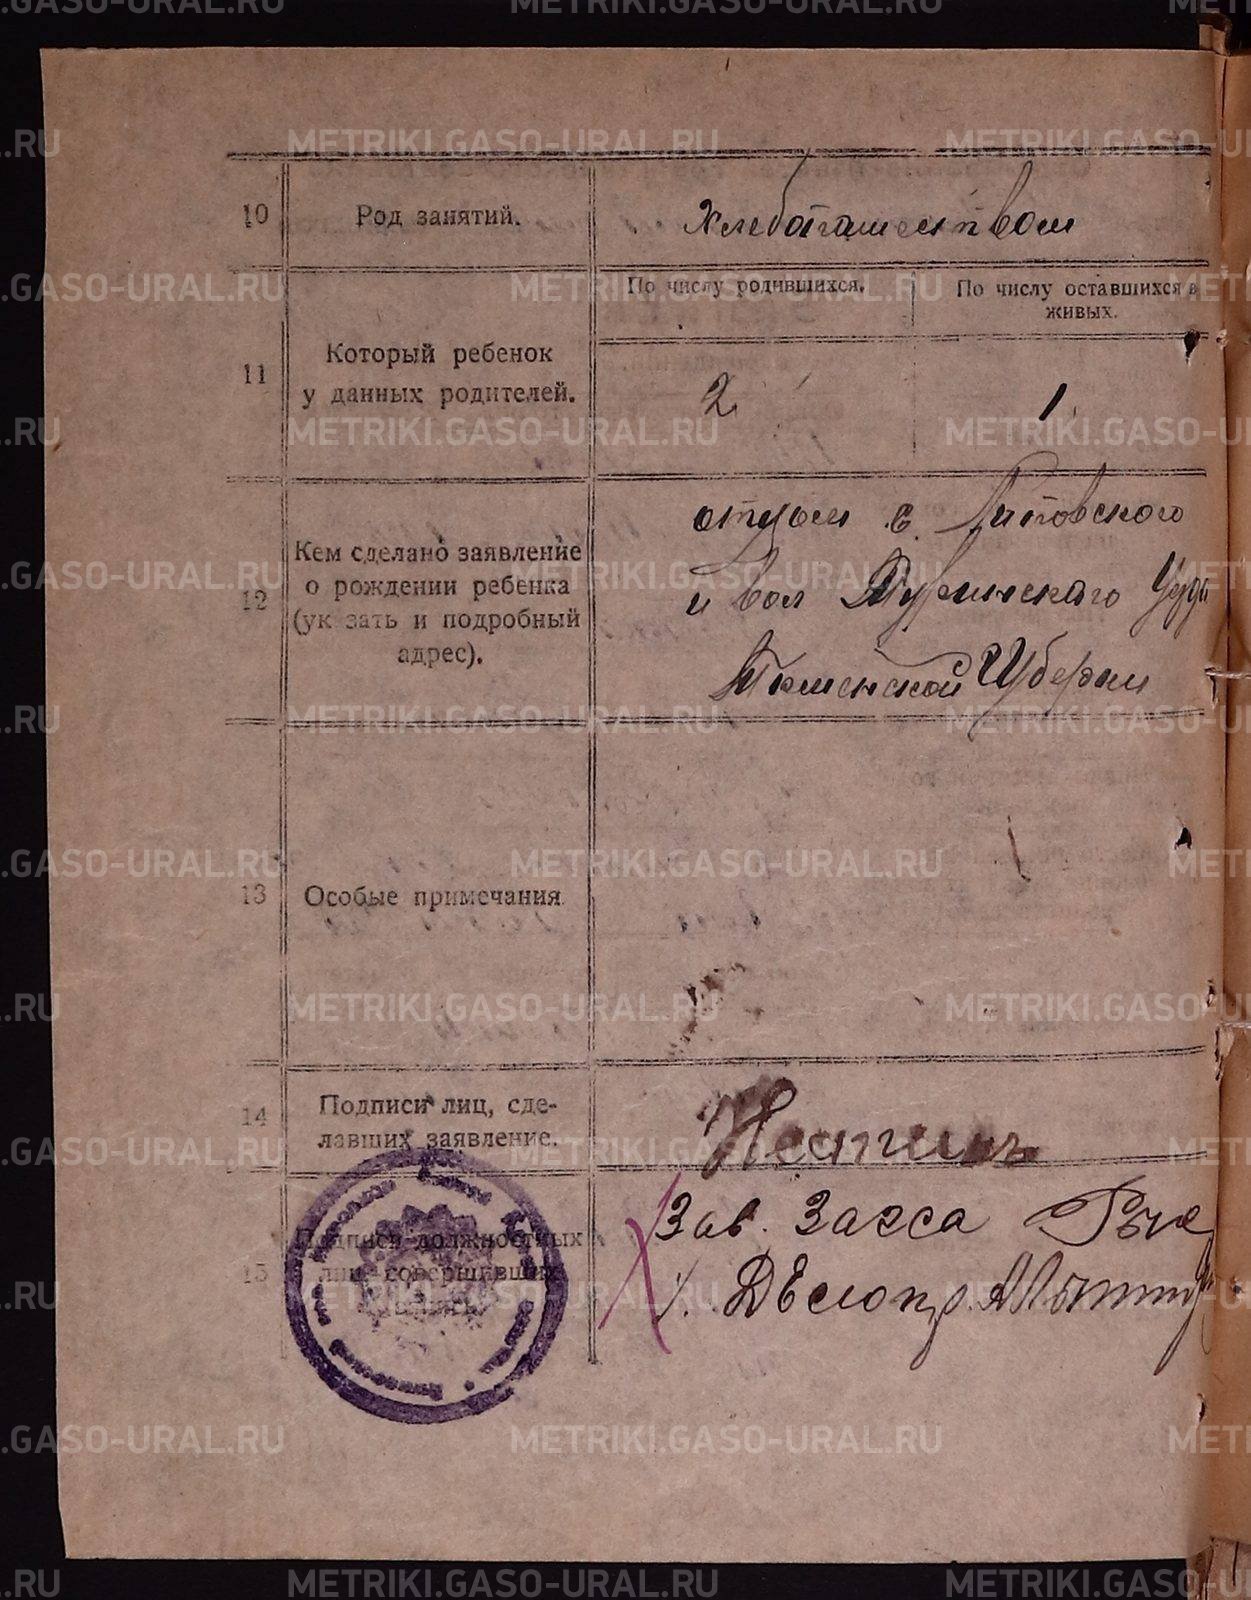 METRIKI.GASO-URAL.RU
10
Род занятий.
Хлебопашеством
По числу родившихся.
По числу оставшихся в
живых.
11
Который ребенок
у данных родителей.
2
1
12
Кем сделано заявление
о рождении ребенка
(ук зать и подробный
адрес).
отцом с. Липовского
и вол Туринского Уезда
Тюменской Губернии
13
Особые примечания
14
Подписи лиц, сде-
лавших заявление.
15
Подписи должностных
лиц, совершивших
запись.
Зав. Загса
Делопр.